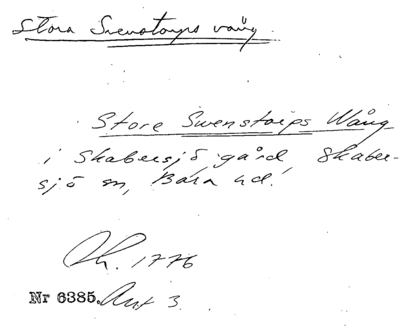 Stora Svenstorps vång
Store Swenstorps Wång
i Skabersjö gård, Skaber-
sjö sn, Bara hd.
Lh. 1776
Nr 6385. Akt 3